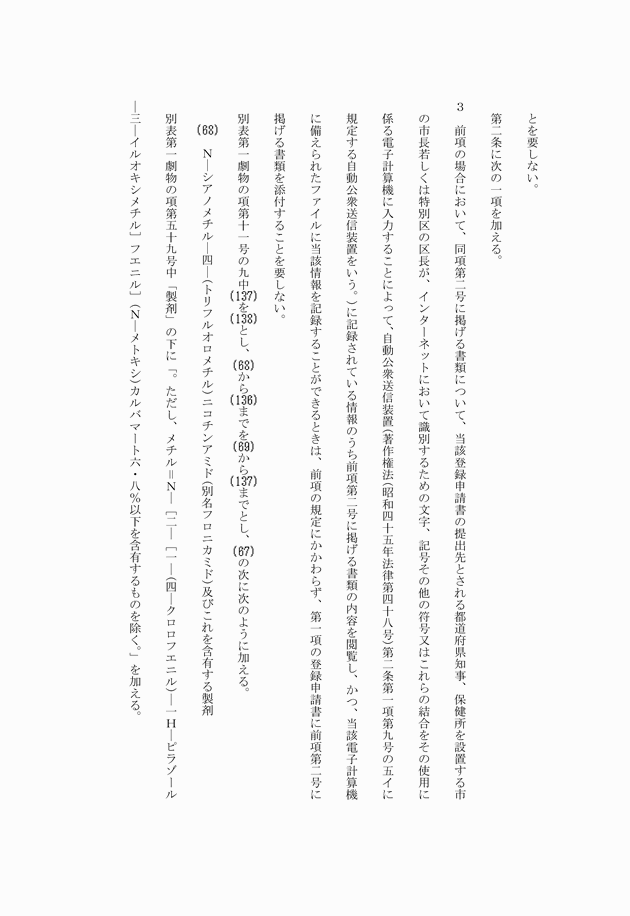 とを要しない。
第二条に次の一項を加える。
３　前項の場合において、同項第二号に掲げる書類について、当該登録申請書の提出先とされる都道府県知事、保健所を設置する市
の市長若しくは特別区の区長が、インターネットにおいて識別するための文字、記号その他の符号又はこれらの結合をその使用に
係る電子計算機に入力することによって、自動公衆送信装置（著作権法（昭和四十五年法律第四十八号）第二条第一項第九号の五イに
規定する自動公衆送信装置をいう。）に記録されている情報のうち前項第二号に掲げる書類の内容を閲覧し、かつ、当該電子計算機
に備えられたファイルに当該情報を記録することができるときは、前項の規定にかかわらず、第一項の登録申請書に前項第二号に
掲げる書類を添付することを要しない。
別表第一劇物の項第十一号の九中(137)を(138)とし、(68)から(136)までを(69)から(137)までとし、(67)の次に次のように加える。
(68)　Ｎ―シアノメチル―四―（トリフルオロメチル）ニコチンアミド（別名フロニカミド）及びこれを含有する製剤
別表第一劇物の項第五十九号中「製剤」の下に「。ただし、メチル＝Ｎ―［二―［一―（四―クロロフエニル）―一Ｈ―ピラゾール
―三―イルオキシメチル］フエニル］（Ｎ―メトキシ）カルバマート六・八％以下を含有するものを除く。」を加える。